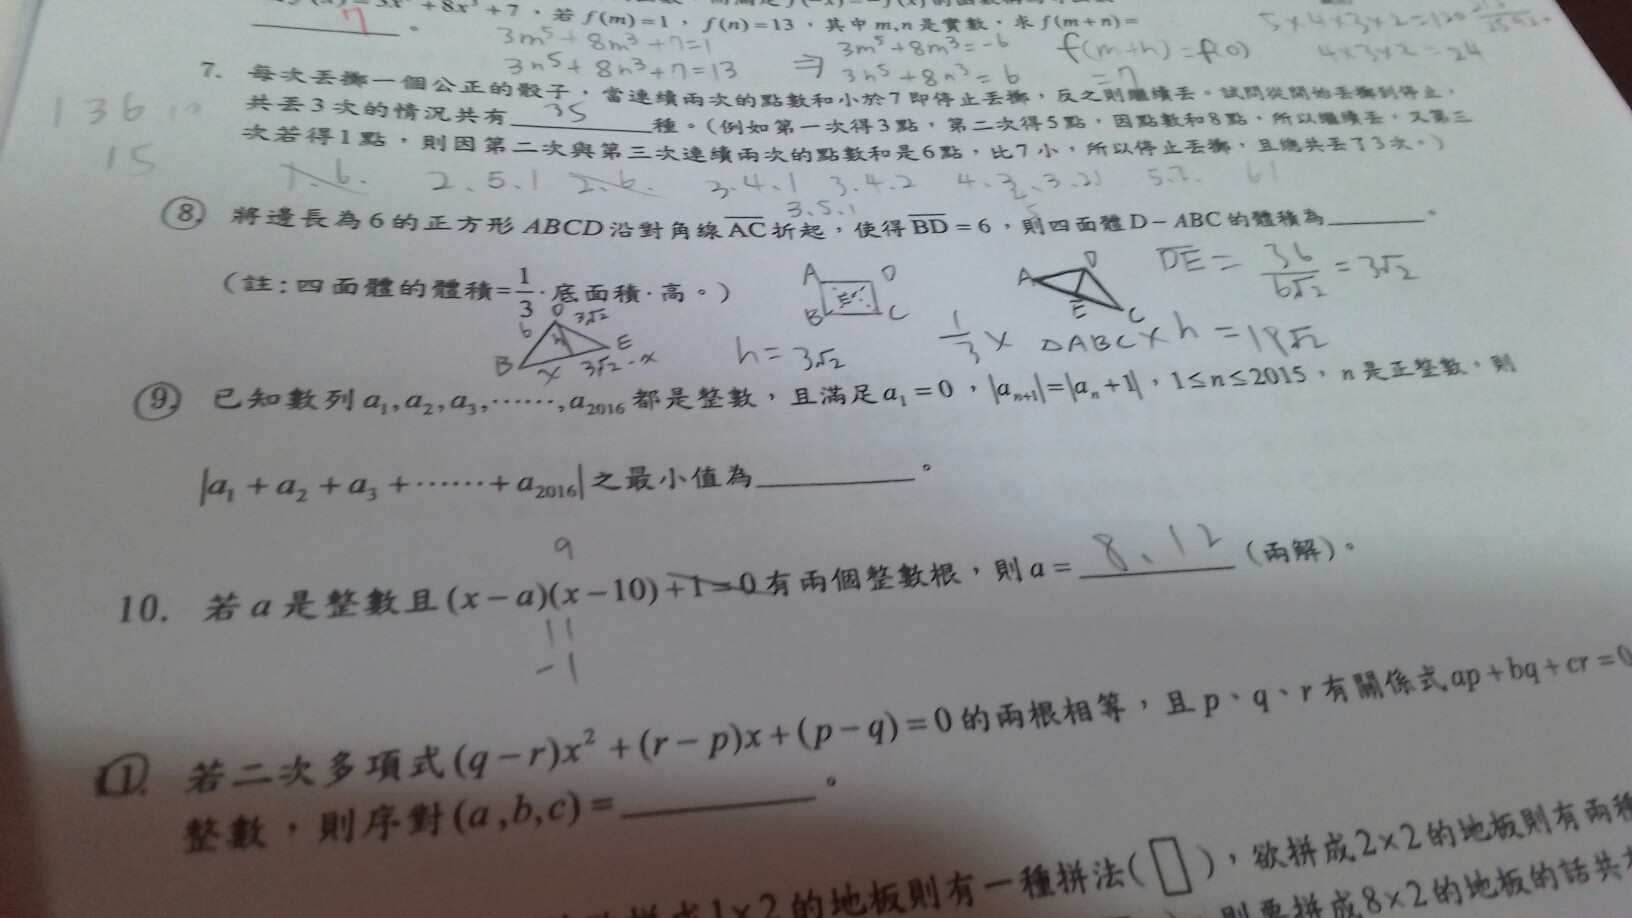 +8x³+7，若 f(m)=1，f(n)=13，其中 m,n 是實數，求 f(m+n)=
7 。
3m⁵+8m³+7=1
3n⁵+8n³+7=13
⇒ 3m⁵+8m³=-6
3n⁵+8n³=6
f(m+n)=f(0)
=7
5×4×3×2=120
4×3×2=24
7. 每次丟擲一個公正的骰子，當連續兩次的點數和小於7即停止丟擲，反之則繼續丟。試問從開始丟擲到停止，
共丟3次的情況共有 35 種。(例如第一次得3點，第二次得5點，因點數和8點，所以繼續丟，又第三
次若得1點，則因第二次與第三次連續兩次的點數和是6點，比7小，所以停止丟擲，且總共丟了3次。)
1 3 6 10
15
1.6. 2.5.1 2.6. 3.4.1 3.4.2
3.5.1
61
⑧ 將邊長為6的正方形ABCD沿對角線AC折起，使得BD=6，則四面體D-ABC的體積為______。
(註:四面體的體積=1/3·底面積·高。)
A D
B C
E
A D
E C
DE = 36/6√2 = 3√2
D 3√2
6 h E
B x 3√2-x
h=3√2
1/3 × △ABC × h = 18√2
⑨ 已知數列 a₁,a₂,a₃,……,a₂₀₁₆ 都是整數，且滿足 a₁=0，|aₙ₊₁|=|aₙ+1|，1≤n≤2015，n是正整數，則
|a₁+a₂+a₃+……+a₂₀₁₆| 之最小值為______。
9
10. 若 a 是整數且 (x-a)(x-10)+1=0 有兩個整數根，則 a= 8、12 (兩解)。
11
-1
⑪ 若二次多項式 (q-r)x²+(r-p)x+(p-q)=0 的兩根相等，且 p、q、r 有關係式 ap+bq+cr=0
整數，則序對 (a,b,c)=______。
1×2的地板則有一種拼法(▯)，欲拼成2×2的地板則有兩種
則要拼成8×2的地板的話共